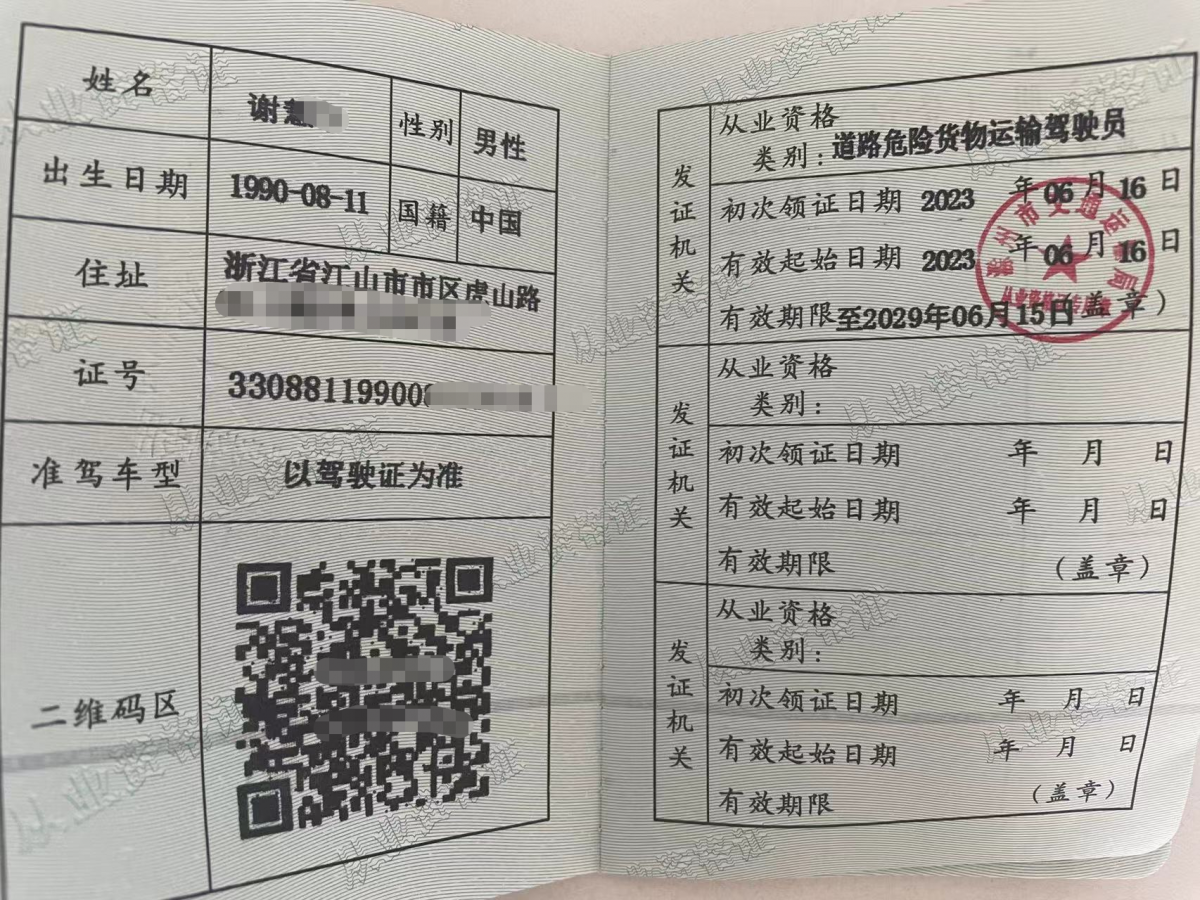 姓名
谢慧
性别
男性
出生日期
1990-08-11
国籍
中国
住址
浙江省江山市市区虎山路
证号
33088119900
准驾车型
以驾驶证为准
二维码区
发证机关
从业资格
类别：道路危险货物运输驾驶员
初次领证日期 2023 年 06 月 16 日
有效起始日期 2023 年 06 月 16 日
有效期限至2029年06月15日（盖章）
市交通运输局
从业资格证专用章
发证机关
从业资格
类别：
初次领证日期 年 月 日
有效起始日期 年 月 日
有效期限 （盖章）
发证机关
从业资格
类别：
初次领证日期 年 月 日
有效起始日期 年 月 日
有效期限 （盖章）
从业资格证